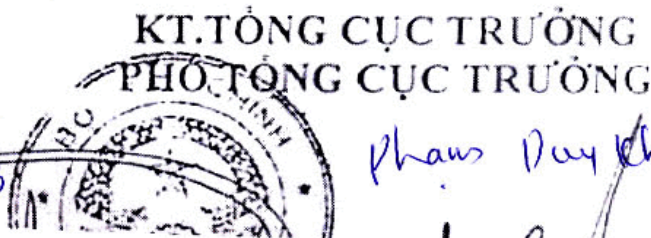 KT.TỔNG CỤC TRƯỞNG
PHÓ TỔNG CỤC TRƯỞNG
Phạm Duy Kh